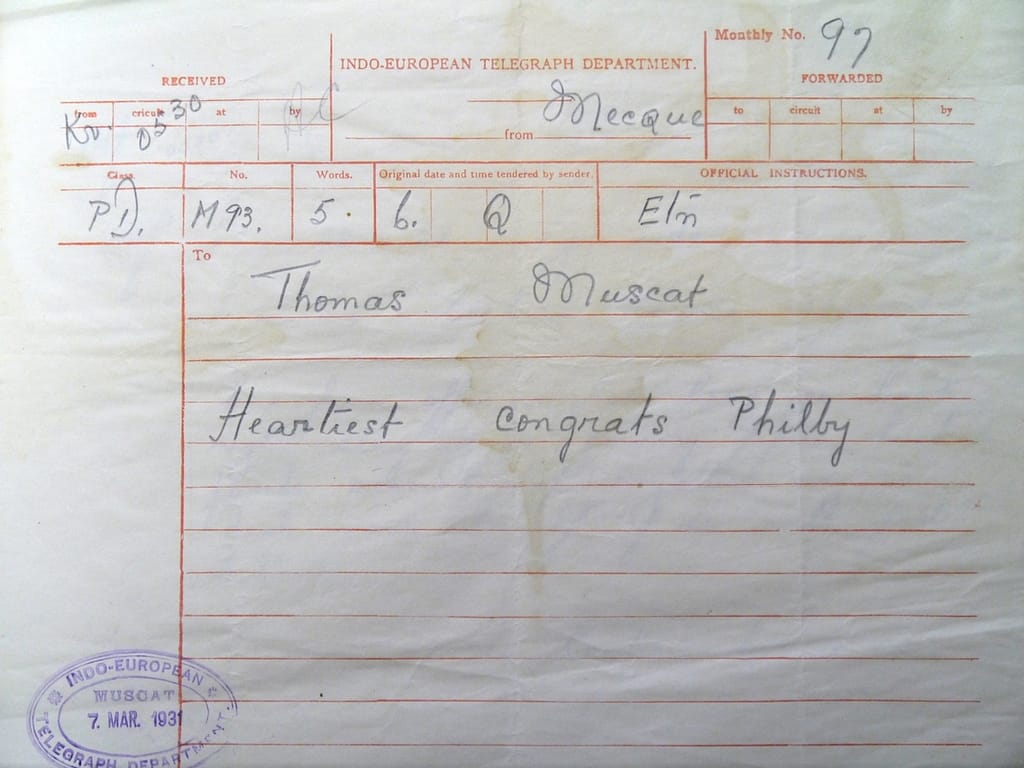 Monthly No. 97
INDO-EUROPEAN TELEGRAPH DEPARTMENT.
RECEIVED
FORWARDED
from cricuit at by
0530
from Mecque
to circuit at by
Class. No. Words. Original date and time tendered by sender. OFFICIAL INSTRUCTIONS.
PD. M93. 5. 6. Q
To
Thomas Muscat
Heartiest congrats Philby
INDO-EUROPEAN
MUSCAT
7. MAR. 1931
TELEGRAPH DEPARTMENT.